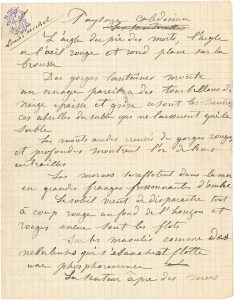 Paysage Calédonien
Louise Michel
L'aigle du pic des morts, l'aigle
a l'œil rouge et rond plane sur la
brousse
Des gorges lointaines monte
un nuage pareil a des tourbillons de
neige épaisse et grise ce sont les
abeilles du sable qui ne laisseront que le
sable
Les monts creusés de gorges rouges
et profondes montrent l'or de leurs
entrailles
Les mornes se reflètent dans la mer
en grandes franges frissonnantes d'ombre
Le soleil vient de disparaître tout
à coup rouge au fond de l'horizon et
rouges encore sont les flots
Sur les comme des
nébuleuses qui s'ébauchent flotte
une phosphorescence
La senteur âpre des mers